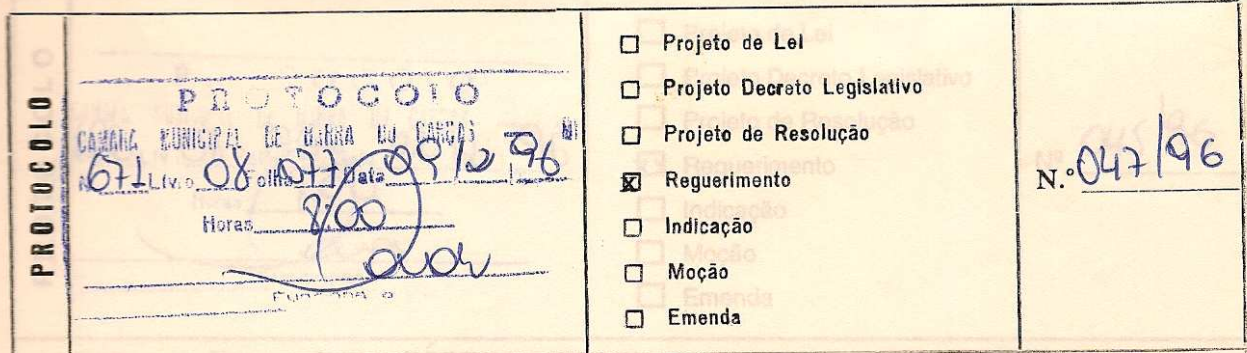 PROTOCOLO
PROTOCOLO
CAMARA MUNICIPAL DE BARRA DO GARÇAS MT
N.º 671 Livro 08 olha 077 Data 96
Horas 8:00
☐ Projeto de Lei
☐ Projeto Decreto Legislativo
☐ Projeto de Resolução
☒ Reguerimento
☐ Indicação
☐ Moção
☐ Emenda
N.º 047/96